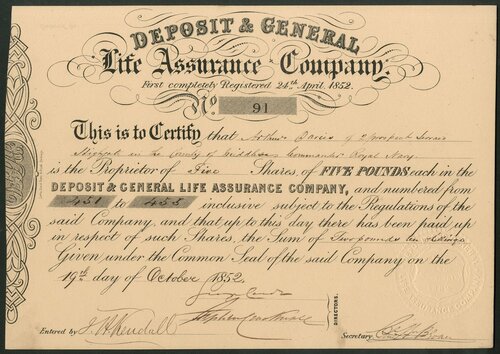 DEPOSIT & GENERAL
Life Assurance Company.
First completely Registered 24th April, 1852.
No. 91
This is to Certify that Arthur Davies of 2 Prospect Terrace
Highgate in the County of Middlesex Commander Royal Navy
is the Proprietor of Five Shares of FIVE POUNDS each in the
DEPOSIT & GENERAL LIFE ASSURANCE COMPANY, and numbered from
451 to 455 inclusive subject to the Regulations of the
said Company, and that up to this day there has been paid up
in respect of such Shares, the Sum of Two pounds ten shillings
Given under the Common Seal of the said Company on the
19th day of October 1852.
DIRECTORS.
Entered by J. H. Kendall
Secretary.